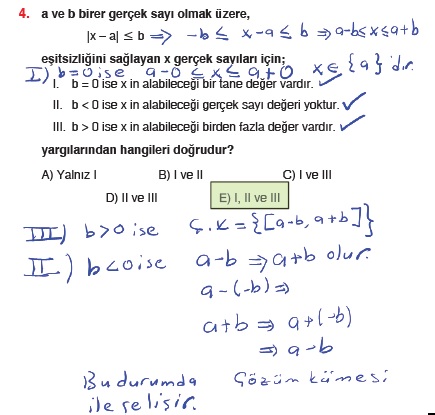 4. a ve b birer gerçek sayı olmak üzere,
|x – a| ≤ b ⇒ -b ≤ x-a ≤ b ⇒ a-b ≤ x ≤ a+b
eşitsizliğini sağlayan x gerçek sayıları için;
I) b=0 ise a-0 ≤ x ≤ a+0 x ∈ {a} 'dır.
I. b = 0 ise x in alabileceği bir tane değer vardır. ✓
II. b < 0 ise x in alabileceği gerçek sayı değeri yoktur. ✓
III. b > 0 ise x in alabileceği birden fazla değer vardır. ✓
yargılarından hangileri doğrudur?
A) Yalnız I B) I ve II C) I ve III
D) II ve III E) I, II ve III
III) b>0 ise Ç.K = {[a-b, a+b]}
II) b<0 ise a-b ⇒ a+b olur.
a-(-b) ⇒
a+b ⇒ a+(-b)
⇒ a-b
Bu durumda Çözüm kümesi
ile çelişir.